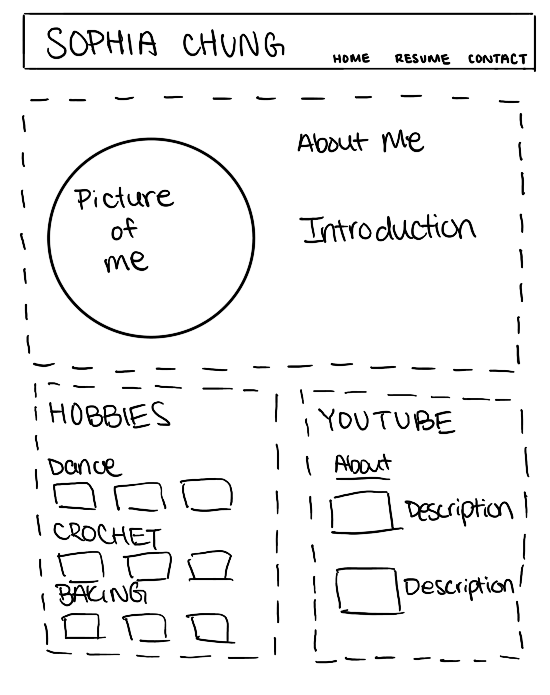 SOPHIA CHUNG
HOME RESUME CONTACT
Picture
of
me
About Me
Introduction
HOBBIES
Dance
CROCHET
BAKING
YOUTUBE
About
Description
Description